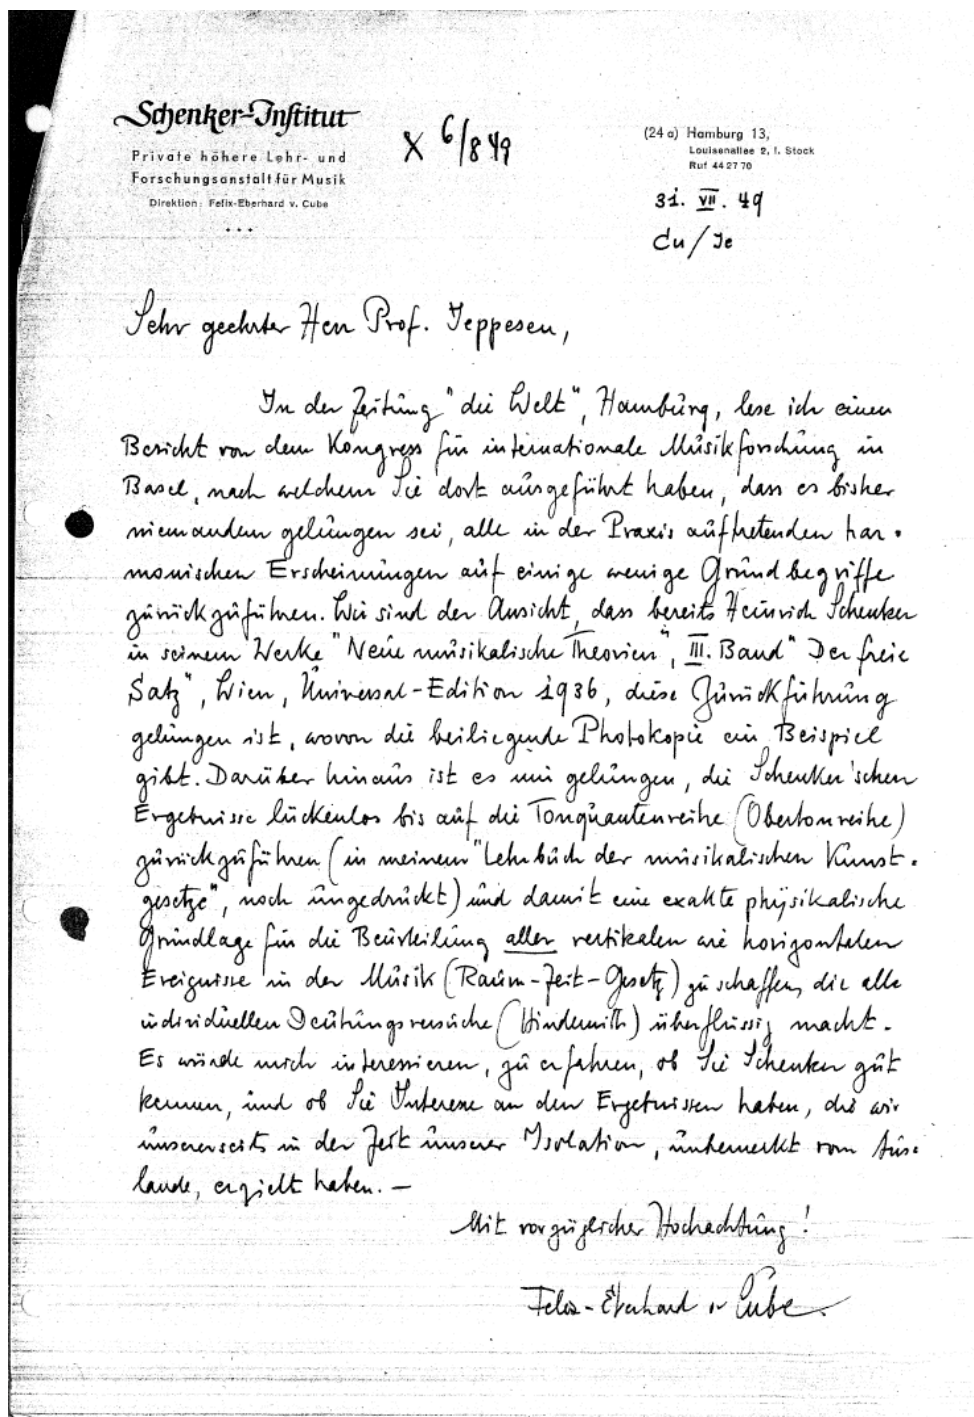 Schenker-Institut
Private höhere Lehr- und
Forschungsanstalt für Musik
Direktion: Felix-Eberhard v. Cube
+ + +
X 6/8 49
(24a) Hamburg 13,
Louisenallee 2, I. Stock
Ruf 44 27 70
31. VII. 49
Cu/Je
Sehr geehrter Herr Prof. Jeppesen,
In der Zeitung "die Welt", Hamburg, lese ich einen
Bericht von dem Kongress für internationale Musikforschung in
Basel, nach welchem Sie dort ausgeführt haben, dass es bisher
niemandem gelungen sei, alle in der Praxis auftretenden har-
monischen Erscheinungen auf einige wenige Grundbegriffe
zurückzuführen. Wir sind der Ansicht, dass bereits Heinrich Schenker
in seinem Werke "Neue musikalische Theorien", III. Band "Der freie
Satz", Wien, Universal-Edition 1936, diese Zurückführung
gelungen ist, wovon die beiliegende Photokopie ein Beispiel
gibt. Darüber hinaus ist es mir gelungen, die Schenker'schen
Ergebnisse lückenlos bis auf die Tonquantenreihe (Obertonreihe)
zurückzuführen (in meinem "Lehrbuch der musikalischen Kunst-
gesetze", noch ungedruckt) und damit eine exakte physikalische
Grundlage für die Beurteilung aller vertikalen wie horizontalen
Ereignisse in der Musik (Raum-Zeit-Gesetz) zu schaffen, die alle
individuellen Deutungsversuche (Hindemith) überflüssig macht.
Es würde mich interessieren, zu erfahren, ob Sie Schenker gut
kennen, und ob Sie Interesse an den Ergebnissen haben, die wir
unsererseits in der Zeit unserer Isolation, unbemerkt vom Aus-
lande, erzielt haben. —
Mit vorzüglicher Hochachtung!
Felix-Eberhard v Cube.